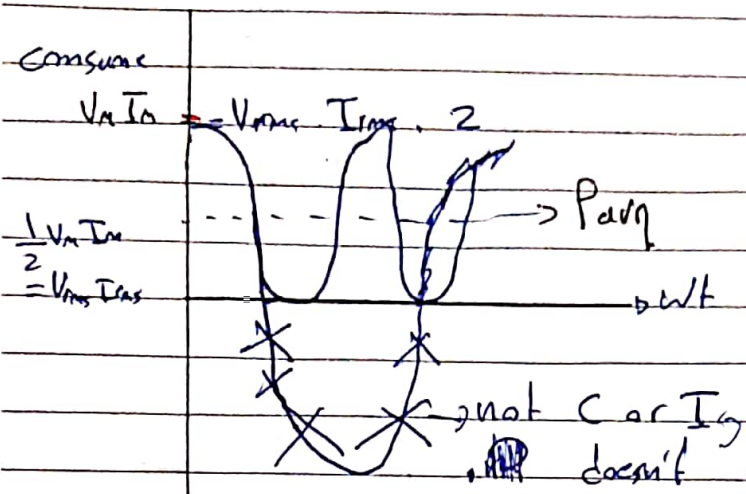 Consume
VₘIₘ = Vᵣₘₛ Iᵣₘₛ . 2
→ Pavg
½ VₘIₘ
= Vᵣₘₛ Iᵣₘₛ
→ wt
→ not C or I
doesn't